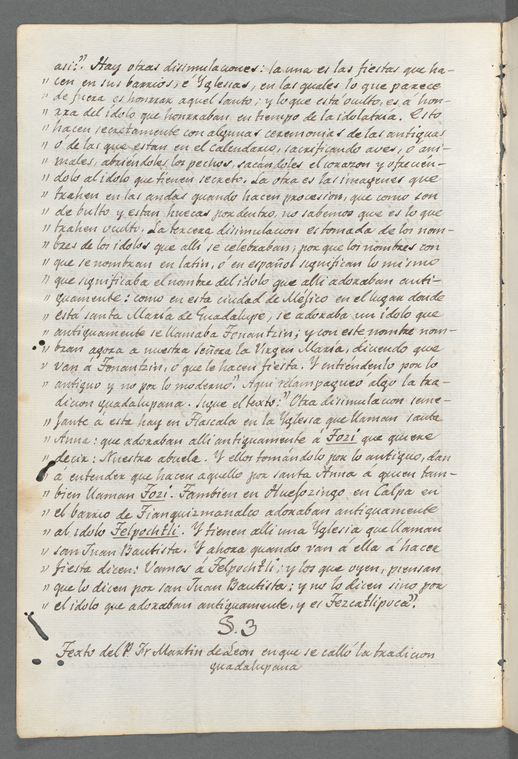 asi:" Hay otras disimulaciones: la una es las fiestas que ha-
" cen en sus barrios, é Yglesias, en las quales lo que parece
" de fuera es honrrar aquel santo; y lo que está oculto, es á hon-
" rra del idolo que honrraban en tiempo de la idolatria. Esto
" hacen secretamente con algunas ceremonias de las antiguas
" ó de las que estan en el calendario, sacrificando aves, ó ani-
" males, abriendoles los pechos, sacándoles el corazon y ofrecien-
" dolo al idolo que tienen secreto. La otra es las imagenes que
" trahen en las andas quando hacen procession, que como son
" de bulto y estan huecas por dentro, no sabemos que es lo que
" trahen oculto. La tercera disimulacion es tomada de los nom-
" bres de los idolos que alli se celebraban; por que los nombres con
" que se nombran en latin, ó en español significan lo mismo
" que significaba el nombre del idolo que alli adoraban anti-
" guamente: como en esta ciudad de Méjico en el lugar donde
" está santa Maria de Guadalupe, se adoraba un idolo que
" antiguamente se llamaba Tonantzin; y con este nombre nom-
" bran agora a nuestra señora la Virgen María, diciendo que
" van á Tonantzin, ó que le hacen fiesta. Y entiendenlo por lo
" antiguo y no por lo moderno". Aqui relampagueo algo la tra-
" dicion guadalupana. Sigue el texto:" Otra disimulacion seme-
" jante a esta hay en Tlaxcala en la Yglesia que llaman santa
" Anna: que adoraban alli antiguamente á Tozi que quiere
" decir: Nuestra abuela. Y ellos tomándolo por lo antiguo, dan
" á entender que hacen aquello por santa Anna á quien tam-
" bien llaman Tozi. Tambien en Huejozingo, en Calpa en
" el barrio de Tianquizmanalco adoraban antiguamente
" al idolo Telpochtli. Y tienen alli una Yglesia que llaman
" san Juan Bautista. Y ahora quando van á ella á hacer
" fiesta dicen: Vamos á Telpochtli; y los que oyen, piensan
" que lo dicen por san Juan Bautista; y no lo dicen sino por
" el idolo que adoraban antiguamente, y es Tezcatlipoca".
§. 3
Texto del P. Fr Martin de Leon en que se calló la tradicion
guadalupana